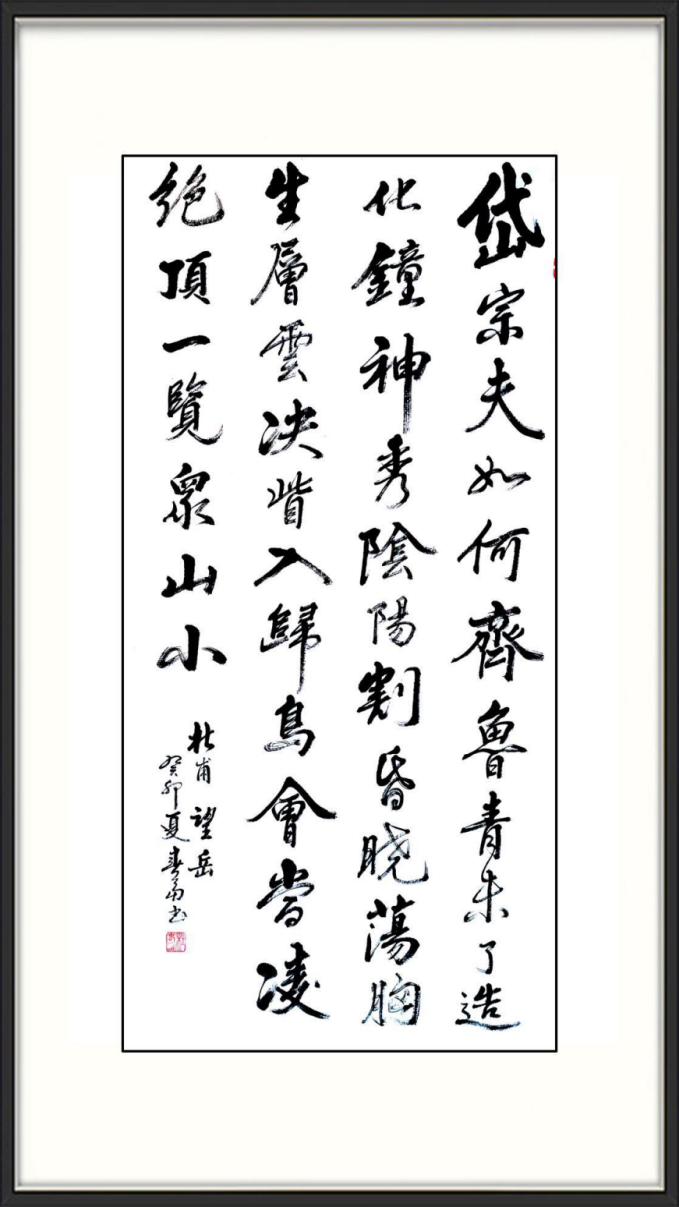 岱宗夫如何齊魯青未了造
化鐘神秀陰陽割昏晓蕩胸
生層雲决眥入歸鳥會當凌
絶頂一覽衆山小
杜甫望岳
癸卯夏春